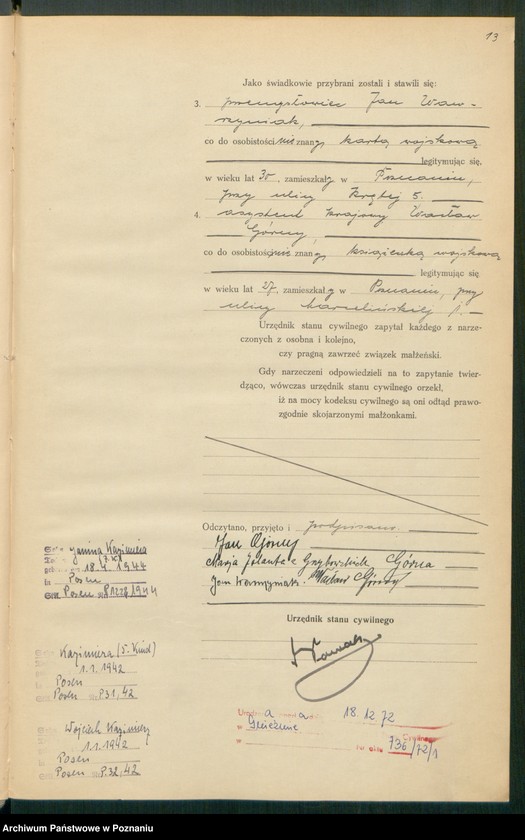 13
Jako świadkowie przybrani zostali i stawili się:
3. przemysłowiec Jan Waw-
rzyniak,
co do osobistości nie znany, kartą wojskową
legitymując się,
w wieku lat 30, zamieszkały w Poznaniu,
przy ulicy Krętej 5.
4. asystent krajowy Wacław
Górny,
co do osobistości nie znany, książeczką wojskową
legitymując się
w wieku lat 27, zamieszkały w Poznaniu, przy
ulicy Marcelińskiej
Urzędnik stanu cywilnego zapytał każdego z narze-
czonych z osobna i kolejno,
czy pragną zawrzeć związek małżeński.
Gdy narzeczeni odpowiedzieli na to zapytanie twier-
dząco, wówczas urzędnik stanu cywilnego orzekł,
iż na mocy kodeksu cywilnego są oni odtąd prawo-
zgodnie skojarzonymi małżonkami.
Odczytano, przyjęto i podpisano.
Jan Górny
Marja Jolanta z Grzybowskich Górna
Jan Wawrzyniak. Wacław Górny
Urzędnik stanu cywilnego
Nowak
Janina Kazimiera
18.4.1944
Posen
Posen 1944
Kazimiera (5. Kind)
1.1.1942
Posen
Posen P.31, 42
Wojciech Kazimierz
1.1.1942
Posen
Posen P.32, 42
18.12.72
Nr aktu 736/72/1
Archiwum Państwowe w Poznaniu